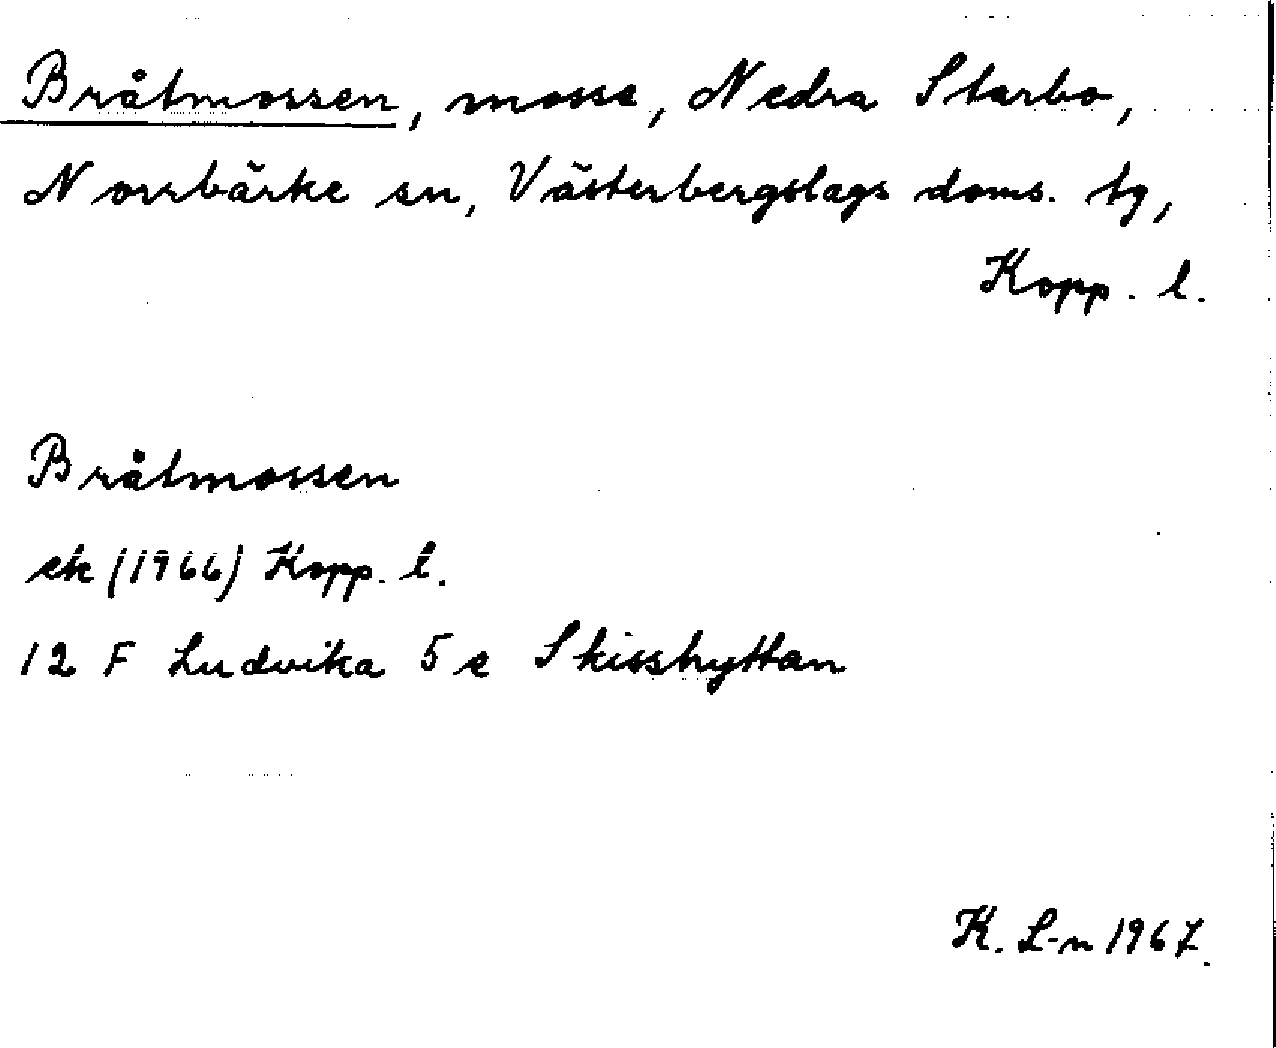 Bråtmossen, mosse, Nedra Starbo,
Norrbärke sn, Västerbergslags doms. tg,
Kopp. l.
Bråtmossen
ek (1966) Kopp. l.
12 F Ludvika 5 e Skisshyttan
K. L-n 1967.